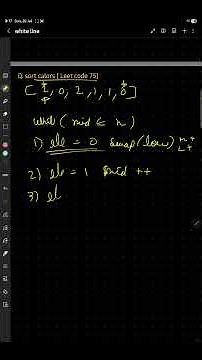 whiteline
Q. sort colors [ Leet code 75]
[ 1, 0, 2, 1, 1, 0 ]
while ( mid ≤ n )
1) ele = 0 swap(low)
2) ele = 1 mid ++
3) el